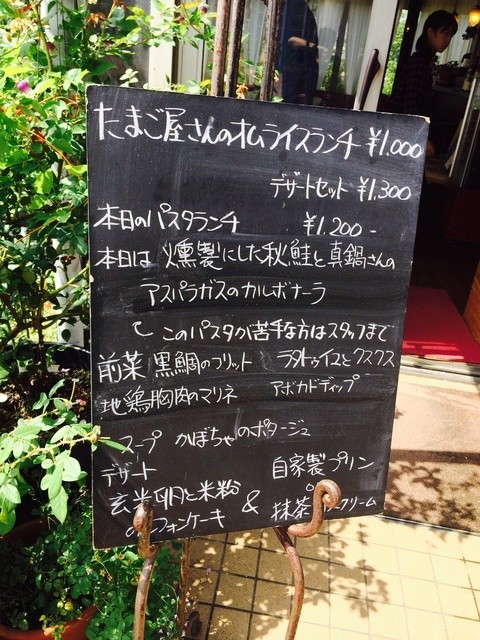 たまご屋さんのオムライスランチ ¥1.000
デザートセット ¥1.300
本日のパスタランチ ¥1.200-
本日は 燻製にした秋鮭と真鍋さんの
アスパラガスのカルボナーラ
このパスタが苦手な方はスタッフまで
前菜 黒鯛のフリット ラタトゥイユとクスクス
地鶏胸肉のマリネ アボカドディップ
スープ かぼちゃのポタージュ
デザート 自家製プリン
玄米卵と米粉 & 抹茶 クリーム
の フォンケーキ